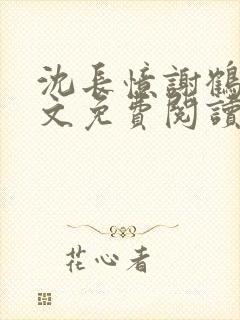 沈長憶謝鶴
文免費閱讀
花心者